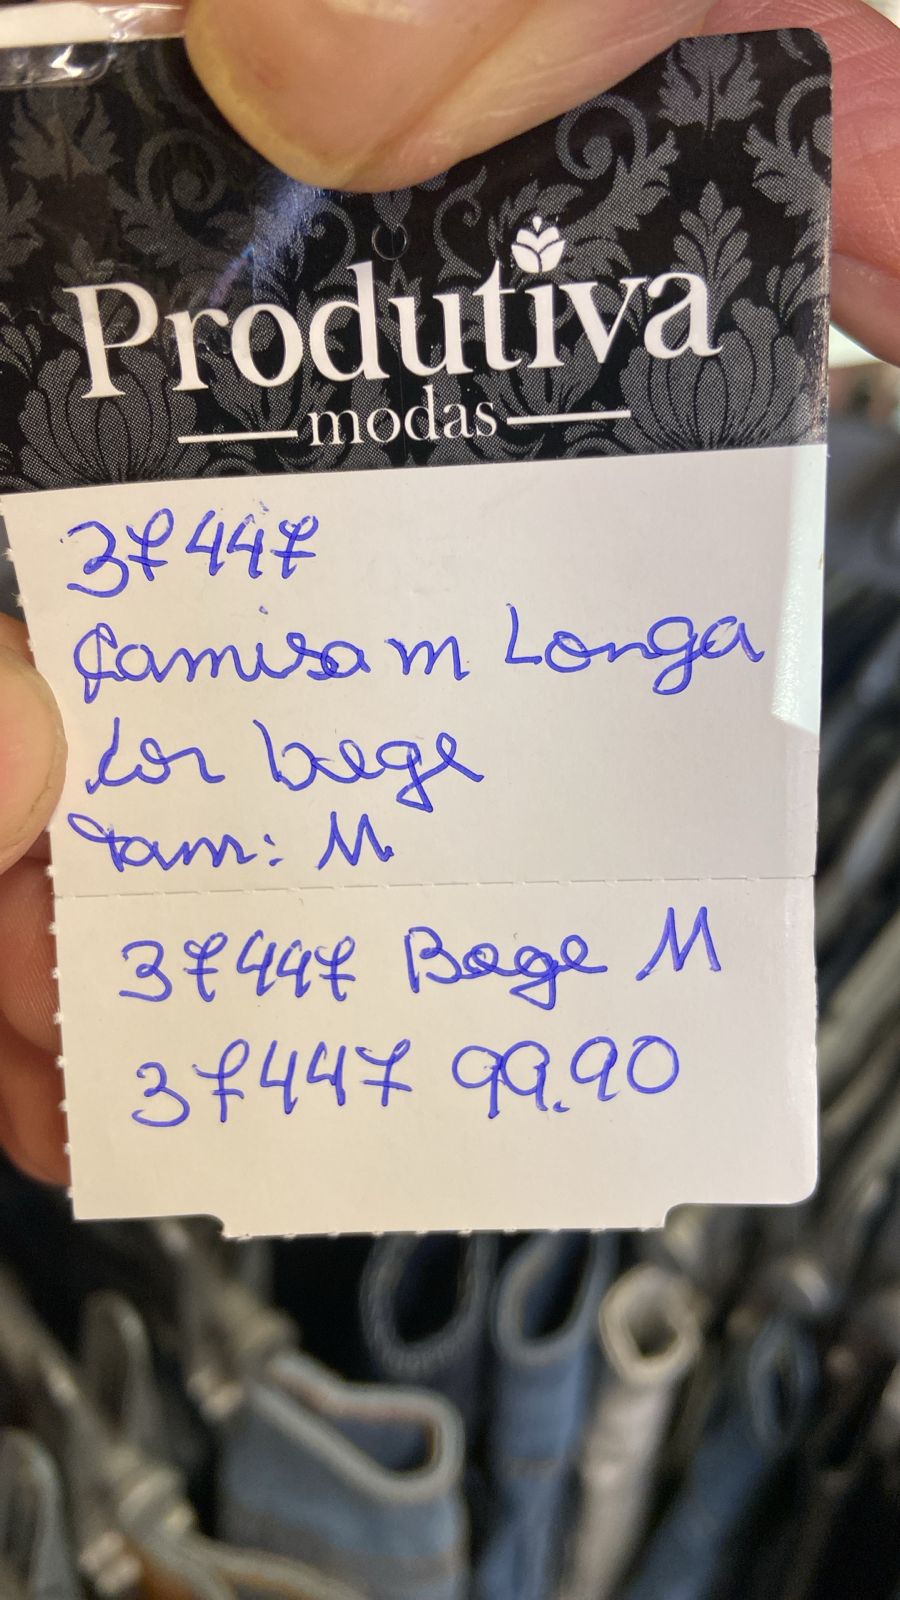 Produtiva
modas
37447
Camisa m Longa
Cor bege
tam: M
37447 Bege M
37447 99.90